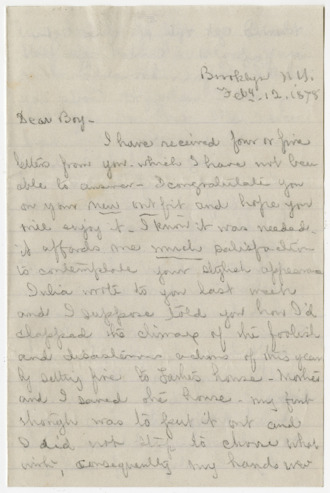 Brooklyn N.Y.
Feby. 12. 1878
Dear Boy-
I have received four or five
letters from you which I have not been
able to answer - I congratulate you
on your new outfit and hope you
will enjoy it - I know it was needed.
it affords me much satisfaction
to contemplate your stylish appearance
Julia wrote to you last week
and I suppose told you how I'd
capped the climax of the foolish
and disastrous actions of this year
by setting fire to house - Mother
and I saved the house - my first
thought was to put it out and
I did not stop to choose what
with, consequently my hands were